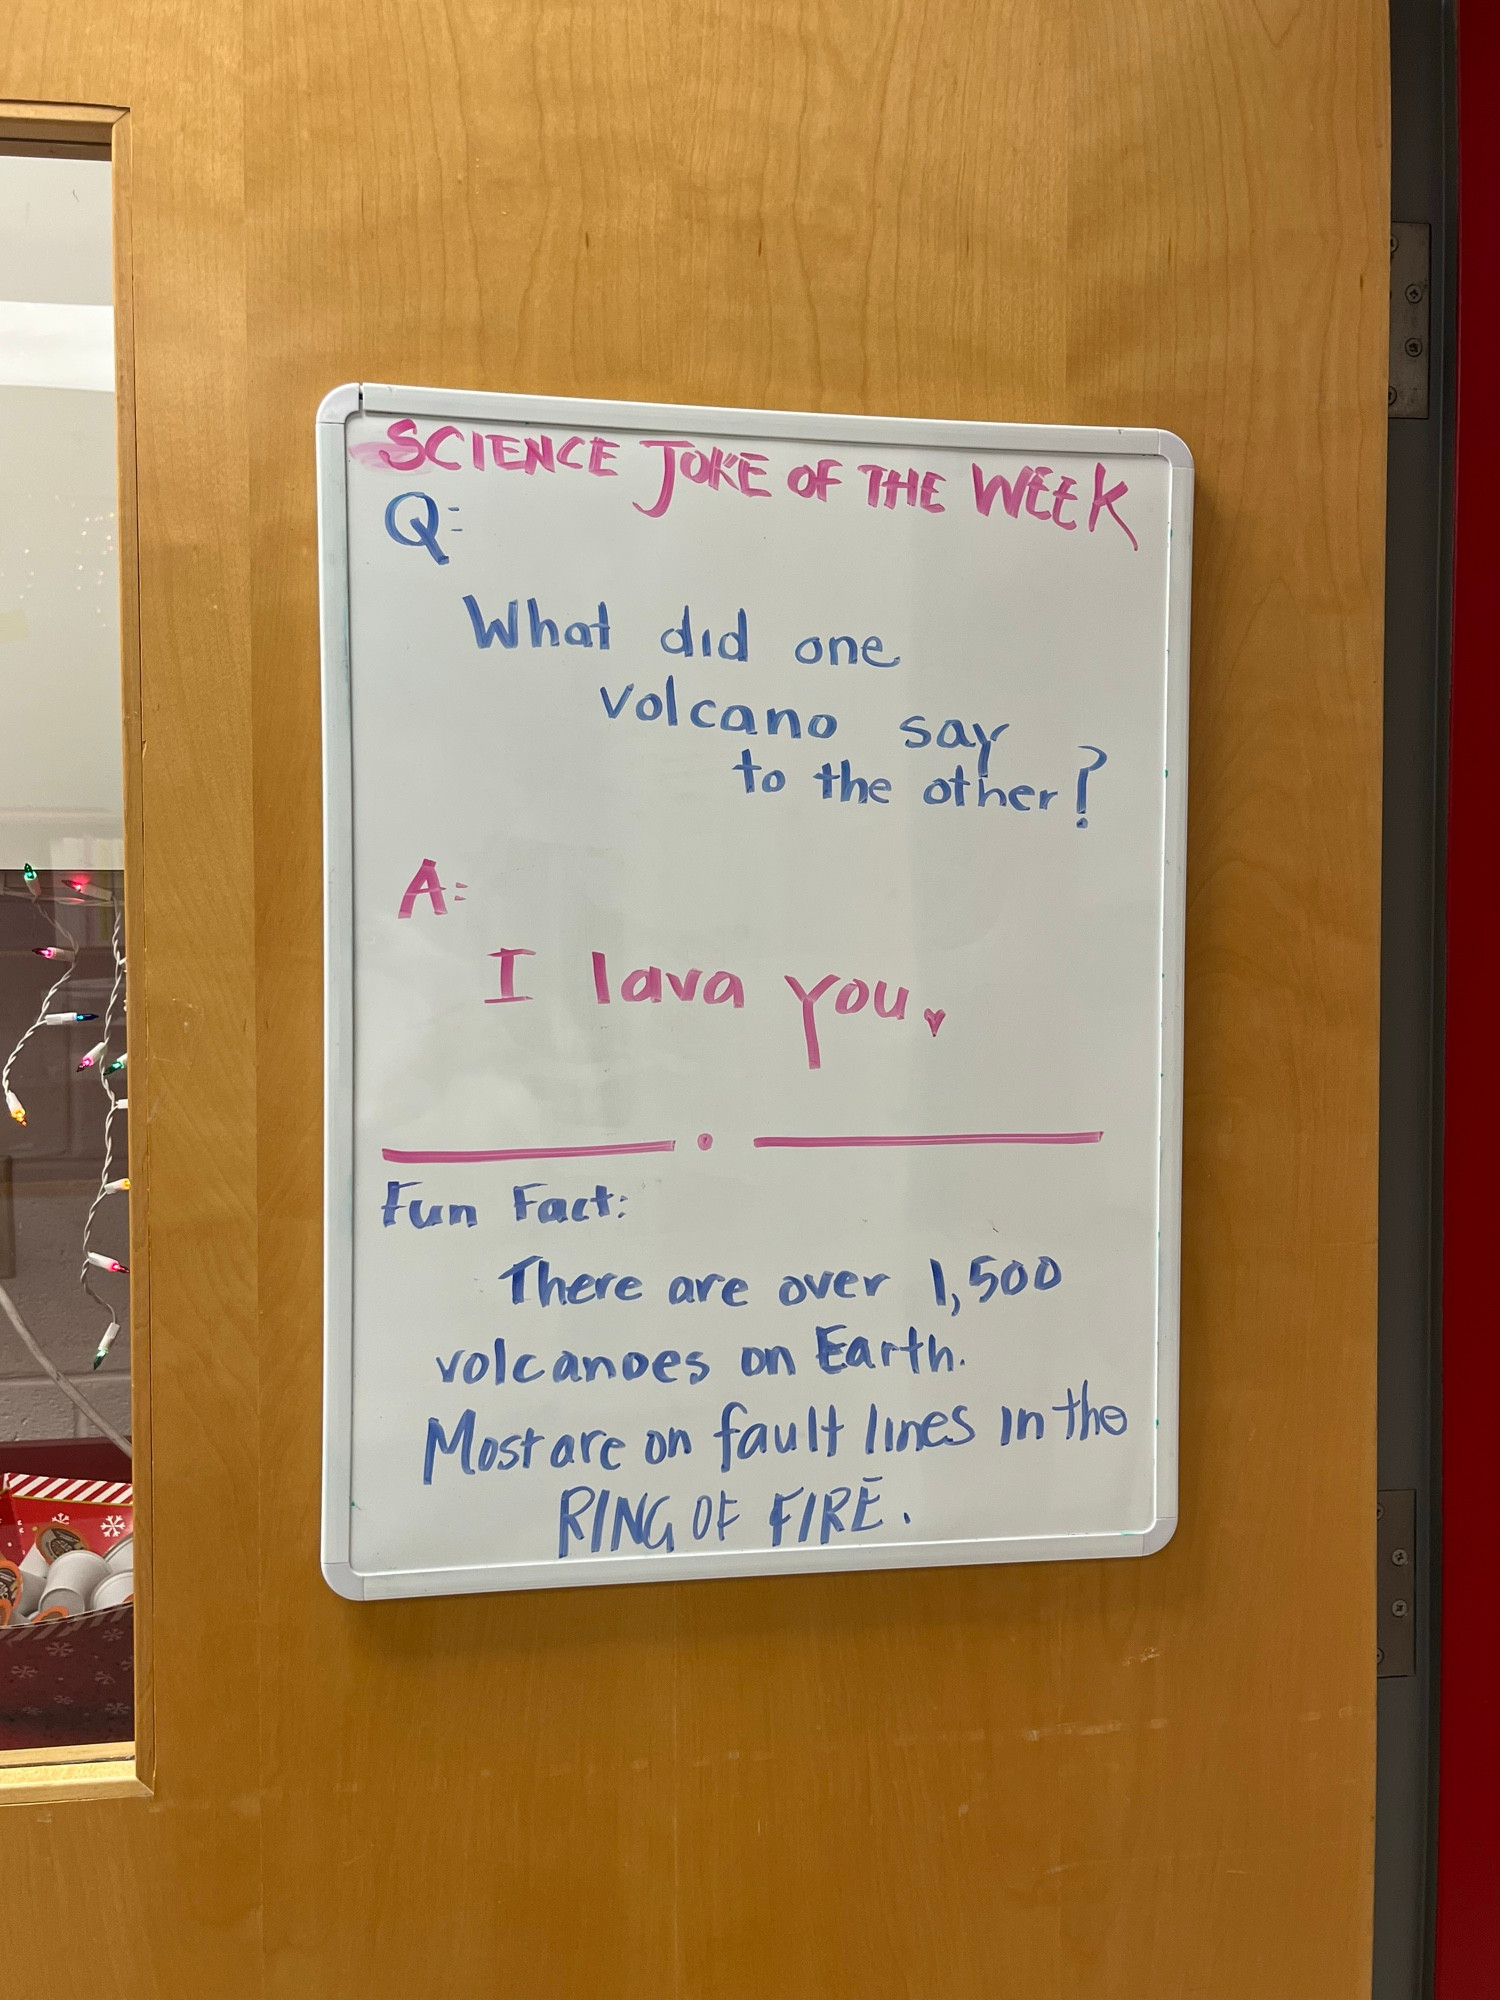 SCIENCE JOKE OF THE WEEK
Q:
What did one
volcano say
to the other?
A:
I lava you.
Fun Fact:
There are over 1,500
volcanoes on Earth.
Most are on fault lines in the
RING OF FIRE.